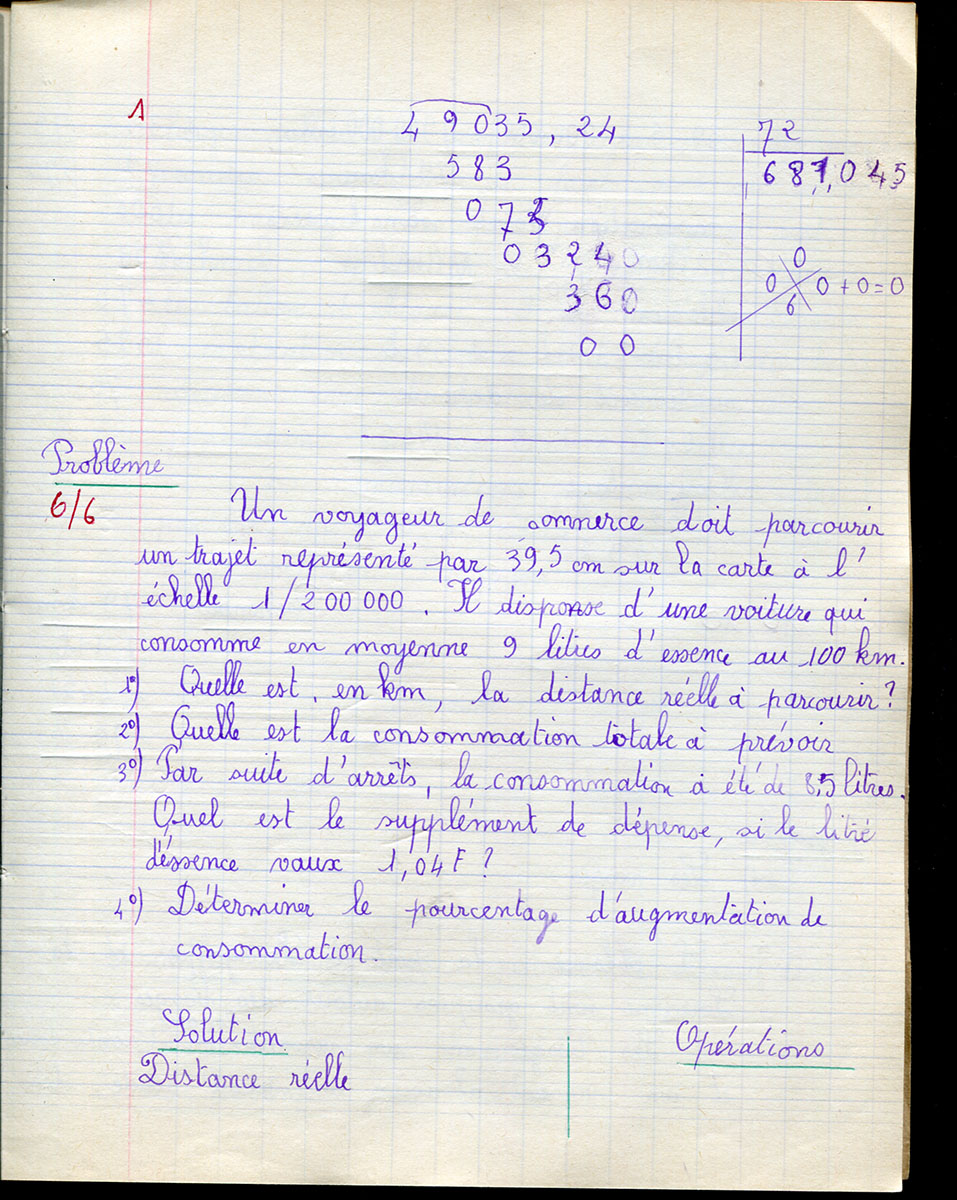 1
49035,24 72
583 681,045
072
03240 0
360 0 0+0=0
00 6
Problème
6/6
Un voyageur de commerce doit parcourir
un trajet représenté par 39,5 cm sur la carte à l'
échelle 1/200 000. Il disponse d'une voiture qui
consomme en moyenne 9 litres d'essence au 100 km.
1º) Quelle est, en km, la distance réelle à parcourir?
2º) Quelle est la consommation totale à prévoir
3º) Par suite d'arrêts, la consommation à été de 8,5 litres.
Quel est le supplément de dépense, si le litre
d'éssence vaux 1,04 F?
4º) Déterminer le pourcentage d'augmentation de
consommation.
Solution Opérations
Distance réelle